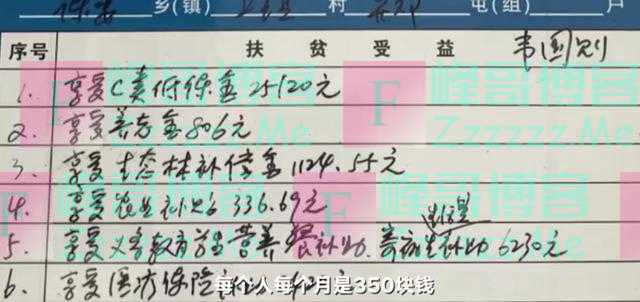 乡(镇) 村 屯(组) 户
序号 扶贫受益 韦国则
1. 享受C类低保金25120元
2. 享受养老金806元
3. 享受生态林补偿金1124.55元
4. 享受农业补贴336.69元
5. 享受义务教育学生营养餐补助、寄宿生补助6230元
6. 享受医疗保险
每个人每个月是350块钱
F 峰哥博客
Zzzzzz.Me